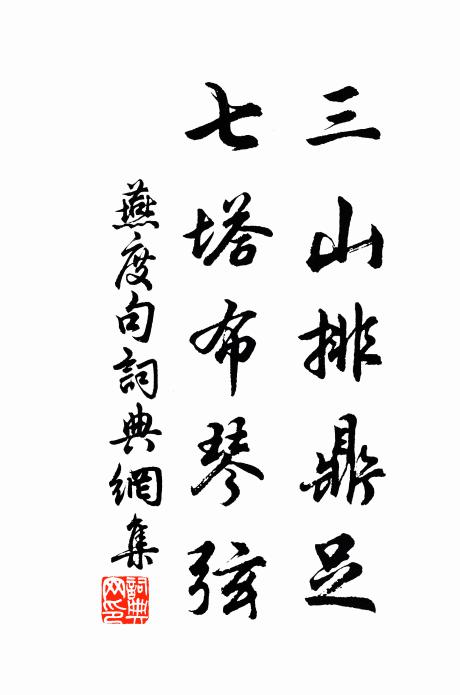 三山排鼎足
七塔布琴弦
燕度句詞典網集
詞典
网印